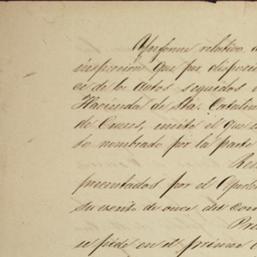 Informe relativo a
inspeccion que por disposi
es de los autos seguidos
Hacienda de Sta. Catalin
de Cuevas, emite el que
lo nombrado por la parte
Re
presentados por el Apode
su escrito de once del co
Pri
se pide en el primero